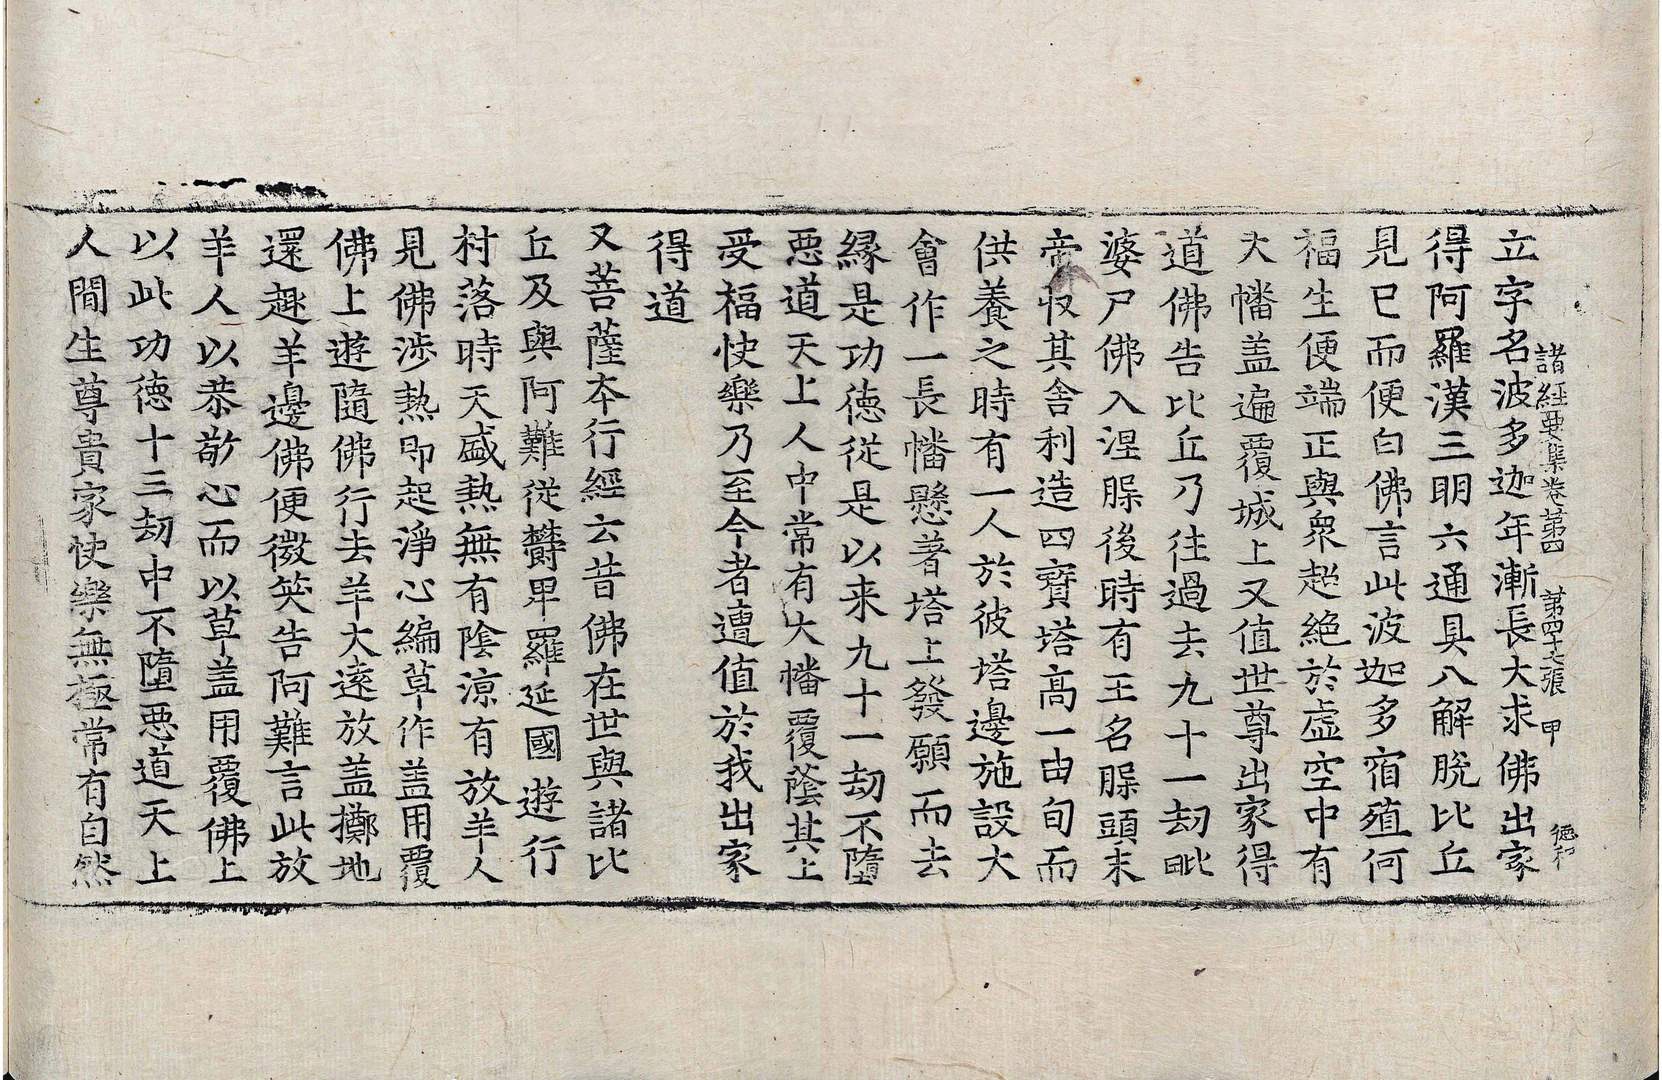 諸經要集卷第四 第四十七張 甲 德和
立字名波多迦年漸長大求佛出家
得阿羅漢三明六通具八解脫比丘
見已而便白佛言此波迦多宿殖何
福生便端正與衆超絶於虛空中有
大幡盖遍覆城上又值世尊出家得
道佛告比丘乃往過去九十一劫毗
婆尸佛入涅槃後時有王名槃頭末
帝收其舍利造四寶塔高一由旬而
供養之時有一人於彼塔邊施設大
會作一長幡懸著塔上發願而去
緣是功德從是以来九十一劫不墮
惡道天上人中常有大幡覆蔭其上
受福快樂乃至今者遭值於我出家
得道
又菩薩本行經云昔佛在世與諸比
丘及與阿難從欝卑羅延國遊行
村落時天盛熱無有陰涼有放羊人
見佛涉熱即起淨心編草作盖用覆
佛上遊隨佛行去羊大遠放盖擲地
還趣羊邊佛便微笑告阿難言此放
羊人以恭敬心而以草盖用覆佛上
以此功德十三劫中不墮惡道天上
人間生尊貴家快樂無極常有自然